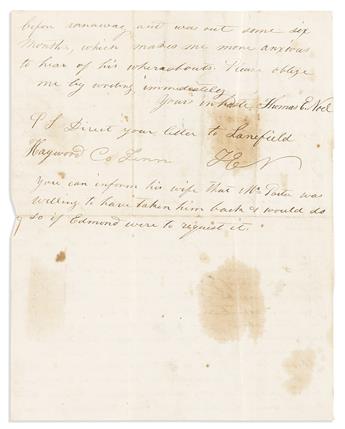 before runaway and was out some six
months, which makes me more anxious
to hear of his whereabouts. Please oblige
me by writing immediately
Yours in haste Thomas E. Noel
P S Direct your letter to Lanefield
Haywood Co Tenn T E N
You can inform his wife that Mr Porter was
willing to have taken him back & would do
so if Edmond were to request it.